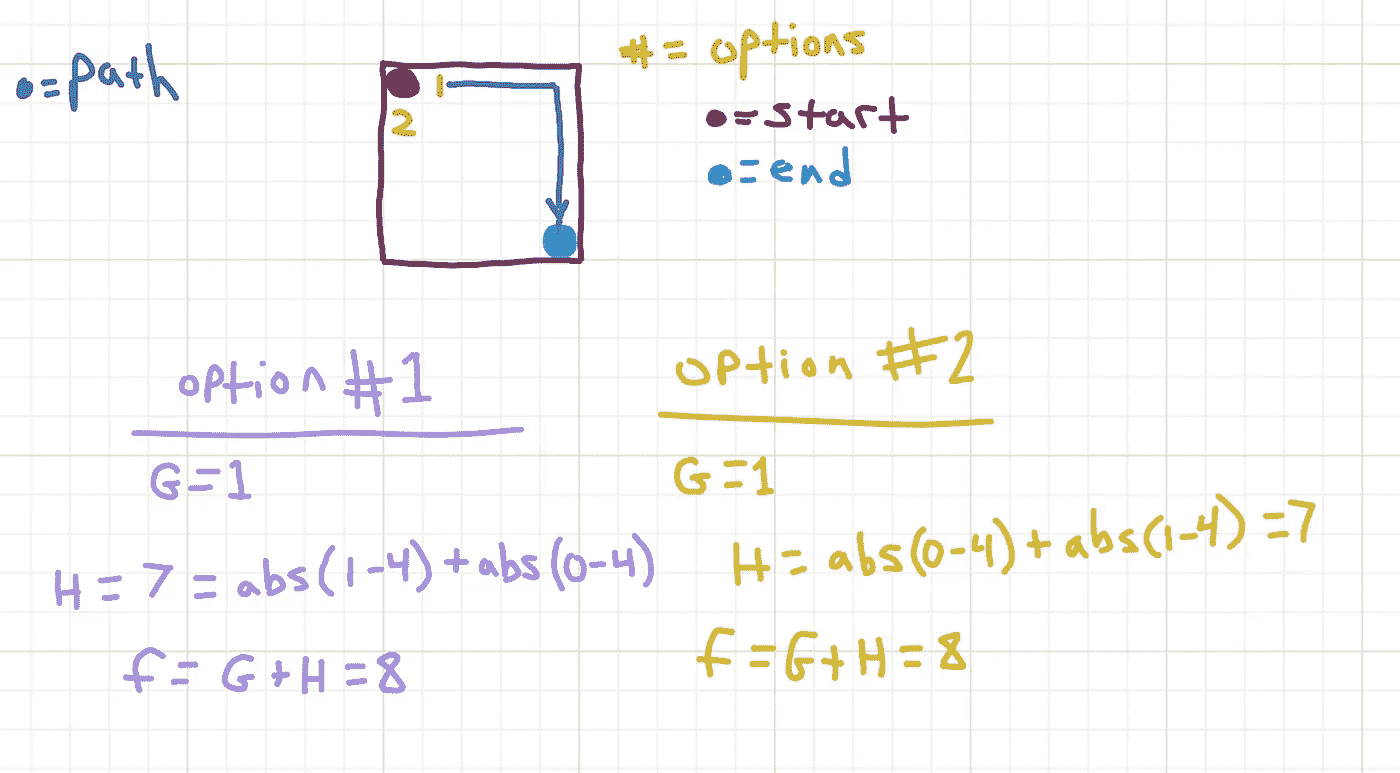 = path
# = options
= start
= end
1
2
option #1
G=1
H = 7 = abs(1-4)+abs(0-4)
f = G+H=8
option #2
G=1
H = abs(0-4)+abs(1-4)=7
f=G+H=8